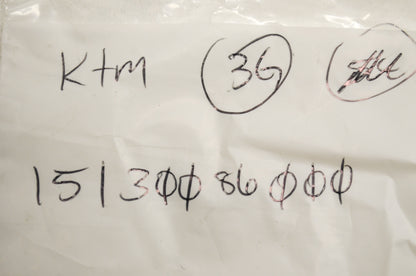 Ktm 3G
15130086000